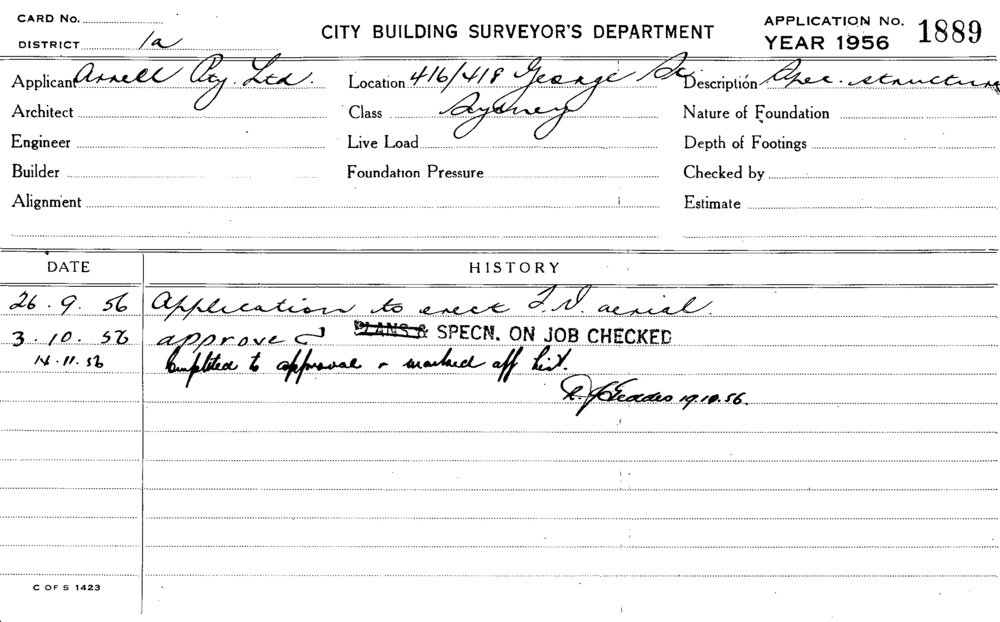 CARD No.
DISTRICT 1a
CITY BUILDING SURVEYOR'S DEPARTMENT
APPLICATION No. 1889
YEAR 1956
Applicant Arnell Pty. Ltd. Location 416/418 George St Description Spec. structure
Architect Class Sydney Nature of Foundation
Engineer Live Load Depth of Footings
Builder Foundation Pressure Checked by
Alignment Estimate
DATE HISTORY
26.9.56 Application to erect T.V. aerial.
3.10.56 approved PLANS & SPECN. ON JOB CHECKED
14.11.56 Completed to approval & marked off list.
R. J. Geddes 19.10.56.
C OF S 1423